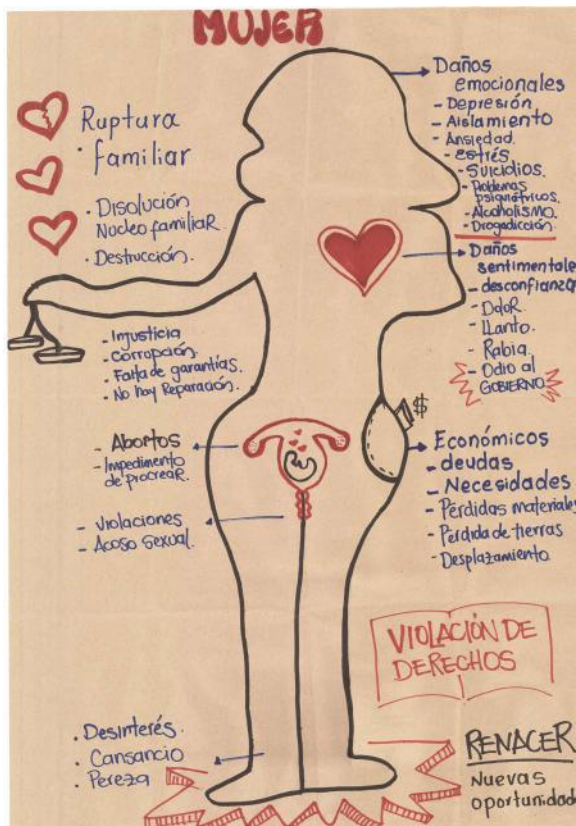 MUJER
Ruptura
· familiar
· Disolución
Nucleo familiaR.
· Destrucción.
- Injusticia
- Corrupción.
- Falta de garantías.
- No hay Reparación.
- Abortos
- Impedimento
de procreaR.
- Violaciones
- Acoso sexual.
· Desinterés.
· Cansancio
· Pereza
Daños
emocionales
- Depresión
- Aislamiento
- Ansiedad.
- estrés
- Suicidios.
- Problemas
psiquiátricos.
- Alcoholismo.
- Drogadicción.
Daños
sentimentales
- desconfianza
- DoloR.
- Llanto.
- Rabia.
- Odio al
GOBIERNO
$
Económicos
- deudas
- Necesidades
- Pérdidas materiales
- Perdida de tierras
- Desplazamiento
VIOLACIÓN DE
DERECHOS
RENACER
Nuevas
oportunidad